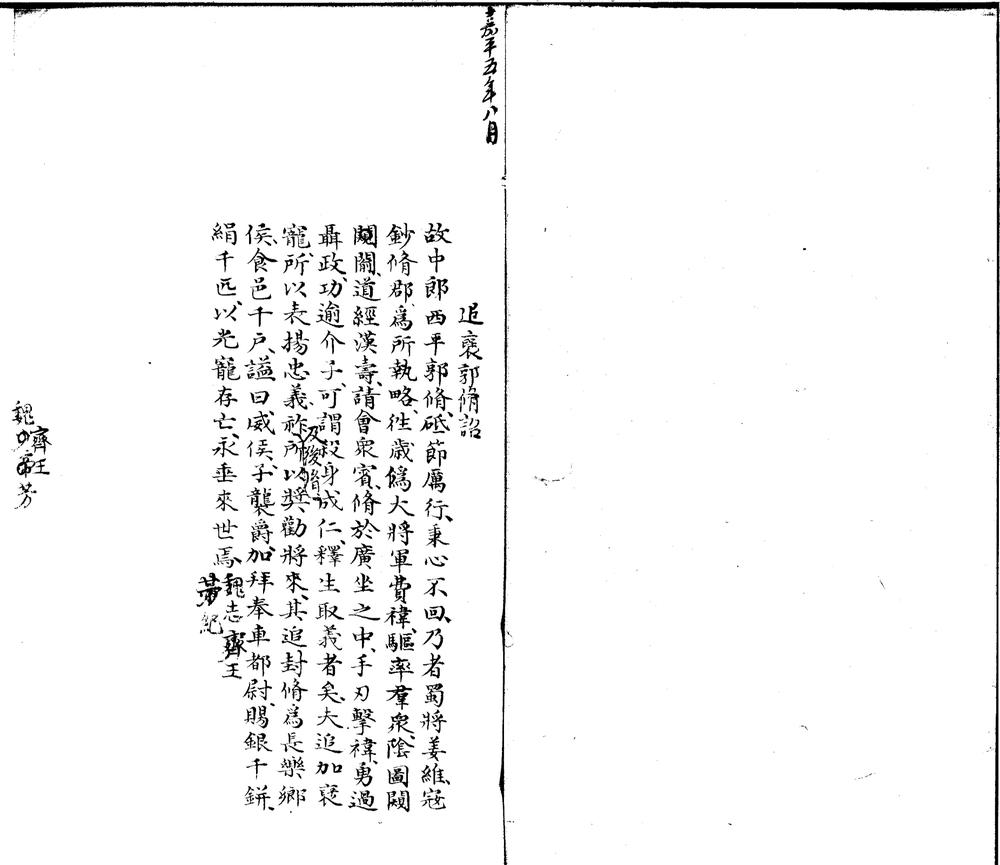 嘉平五年八月
追襃郭脩詔
故中郎西平郭脩、砥節厲行、秉心不回、乃者蜀將姜維、寇
鈔脩郡、爲所執略、往歲僞大將軍費禕、驅率羣衆、陰圖闚
闚關、道經漢壽、請會衆賓、脩於廣坐之中、手刃擊禕、勇過
聶政、功逾介子、可謂殺身成仁、釋生取義者矣、夫追加襃
寵、所以表揚忠義、祚及後胤、所以奬勸將來、其追封脩爲長樂鄉
侯、食邑千戶、諡曰威侯、子襲爵、加拜奉車都尉、賜銀千鉼、
絹千匹、以光寵存亡、永垂來世焉、魏志齊王
芳紀
齊王
魏少帝芳